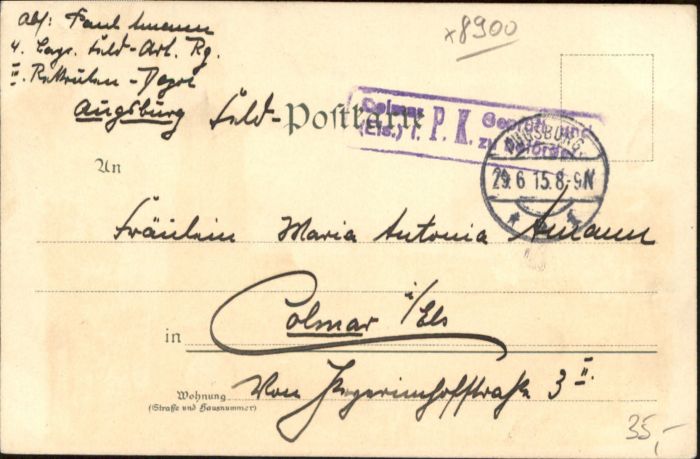 Abs: Paul Amann
x8900
4. bayr. Feld-Art. Rg.
II. Rekruten-Depot
Augsburg
Feld-Postkarte
Colmar Geprüft und
(Els.) F. P. K. zu
AUGSBURG
29.6 15.8-9N
An
Fräulein Maria Antonia Amann
in Colmar i/Els
Wohnung
(Straße und Hausnummer)
Von 3 II.
35,-